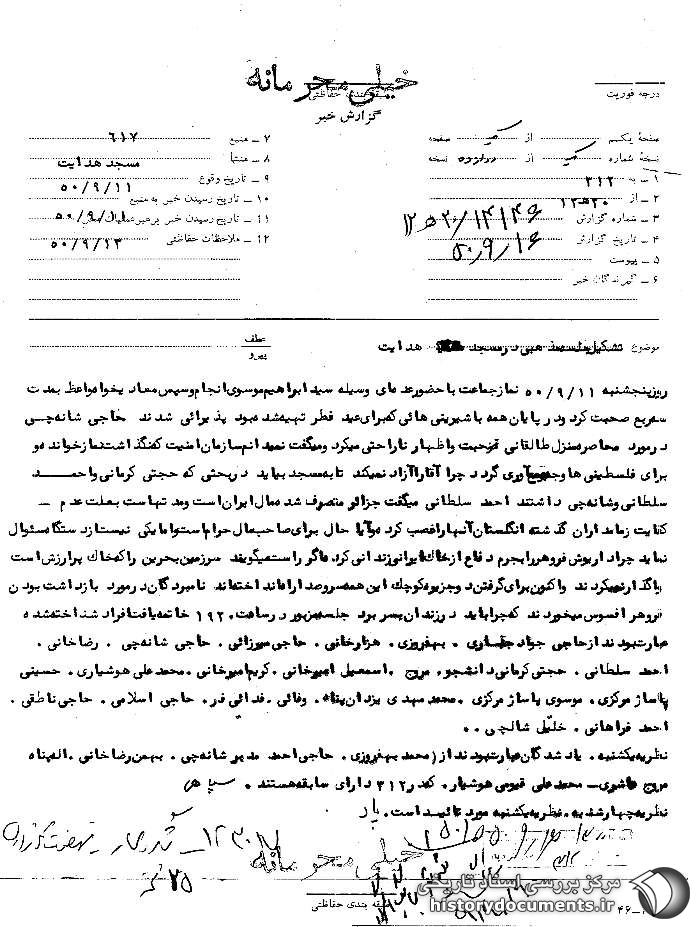 خیلی محرمانه
طبقه بندی حفاظتی
گزارش خبر
درجه فوریت
صفحهٔ یکم از صفحه
نسخهٔ شماره از نسخه
۱ ـ به ۳۱۲
۲ ـ از
۳ ـ شماره گزارش
۴ ـ تاریخ گزارش ۵۰/۹/۱۶
۵ ـ پیوست
۶ ـ گیرندگان خبر
۷ ـ منبع ۶۱۷
۸ ـ منشأ مسجد هدایت
۹ ـ تاریخ وقوع ۵۰/۹/۱۱
۱۰ ـ تاریخ رسیدن خبر به منبع
۱۱ ـ تاریخ رسیدن خبر برهبر عملیات
۱۲ ـ ملاحظات حفاظتی ۵۰/۹/۱۳
موضوع تشکیل جلسه مذهبی در مسجد هدایت
عطف
پیرو
روز پنجشنبه ۵۰/۹/۱۱ نماز جماعت با حضور عده‌ای وسیله سید ابراهیم موسوی انجام و سپس معادیخواه واعظ بمدت
سه ربع صحبت کرد و در پایان همه با شیرینی هائی که برای عید فطر تهیه شده بود پذیرائی شدند حاجی شانه چی
در مورد محاصره منزل طالقانی صحبت و اظهار ناراحتی میکرد و میگفت نمیدانم سازمان امنیت که نگذاشت نماز خوانده شود
برای فلسطینی ها وجه جمع آوری گردد چرا آقا را آزاد نمیکند تا به مسجد بیاید در بحثی که حجتی کرمانی و احمد
سلطانی و شانه چی داشتند احمد سلطانی میگفت جزائر متصرف شده مال ایران است و مدتهاست بعلت عدم ـ
کفایت زمامداران گذشته انگلستان آنها را غصب کرده و آیا حال برای صاحب مال حرام است و اما یکی نیست از دستگاه سئوال
نماید چرا داریوش فروهر را بجرم دفاع از خاک ایران زندانی کرده مگر راست میگویند سرزمین بحرین را که خاک پر ارزش است
واگذار نمیکردند واکنون برای گرفتن دو جزیره کوچک این همه سر و صدا راه انداخته‌اند نامبردگان در مورد بازداشت بودن
فروهر افسوس میخوردند که چرا باید در زندان بسر برد جلسه مزبور در ساعت ۱۹۲۰ خاتمه یافت افراد شناخته شده
عبارت بودند از حاجی جواد . بهفروزی . هزارخانی . حاجی میرزائی . حاجی شانه چی . رضاخانی .
احمد سلطانی . حجتی کرمانی دانشجو . مروج . اسمعیل امیرخانی . کریم امیرخانی . محمد علی هوشیاری . حسینی
پاساژ مرکزی . موسوی پاساژ مرکزی . محمد مهدی یزدان پناه . وفائی . فدائی فر . حاجی اسلامی . حاجی ناطقی .
احمد فراهانی . خلیل شالچی . .
نظریه یکشنبه . یاد شدگان عبارت بودند از (محمد بهفروزی . حاجی احمد مدیر شانه چی . بهمن رضاخانی . اله پناه
مروج عاشوری ــ محمد علی قیومی هوشیار . که در ۳۱۲ دارای سابقه هستند .
نظریه چهارشنبه . نظریه یکشنبه مورد تائید است .
خیلی محرمانه
طبقه بندی حفاظتی
مرکز بررسی اسناد تاریخی
historydocuments.ir